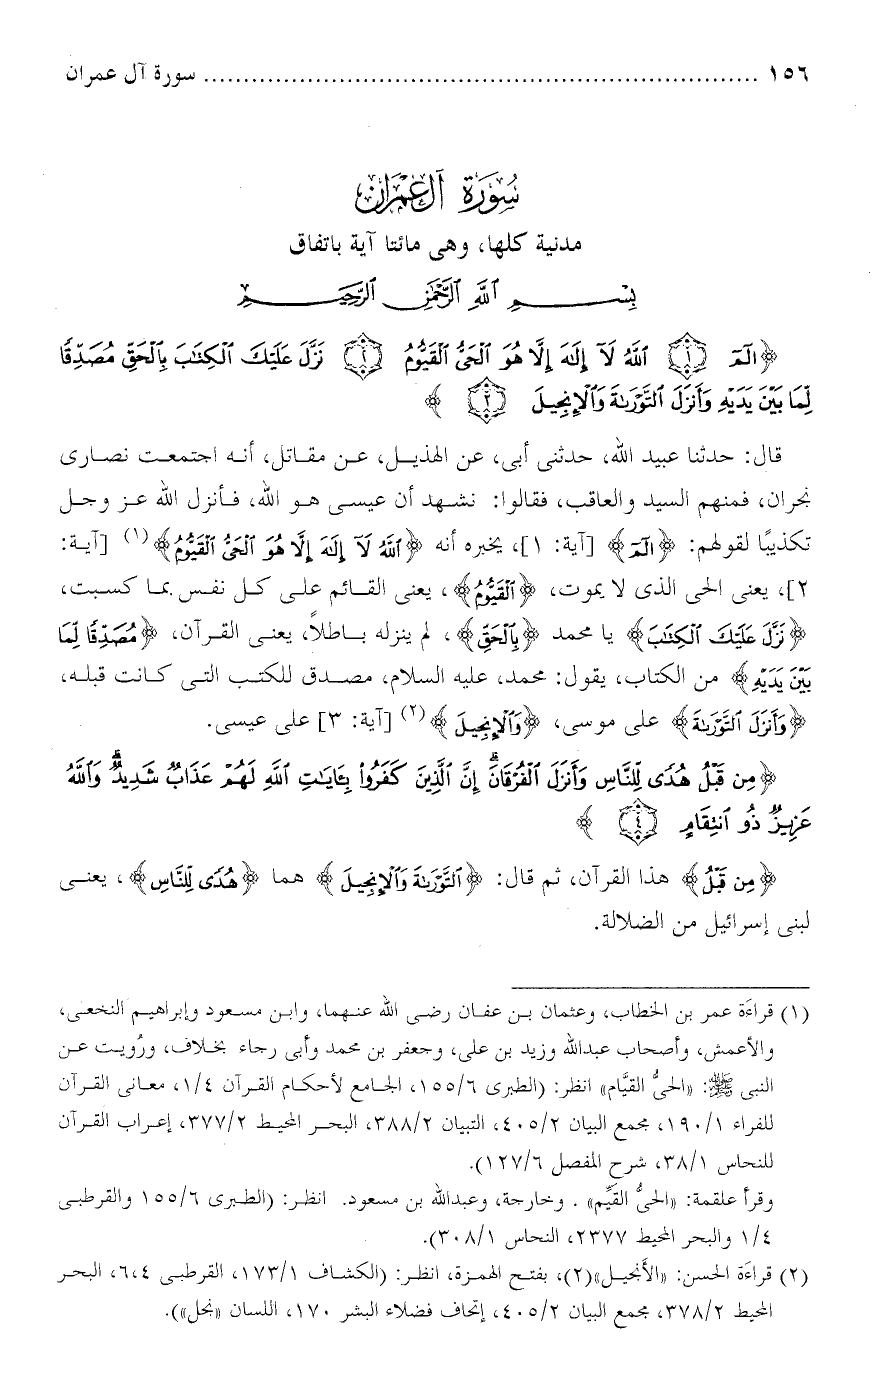 ١٥٦ ........................................................................ سورة آل عمران
سُورَةُ آلِ عِمْرَانَ
مدنية كلها، وهى مائتا آية باتفاق
بِسْمِ ٱللَّهِ ٱلرَّحْمَٰنِ ٱلرَّحِيمِ
﴿الٓمٓ ۝١ ٱللَّهُ لَآ إِلَٰهَ إِلَّا هُوَ ٱلْحَىُّ ٱلْقَيُّومُ ۝٢ نَزَّلَ عَلَيْكَ ٱلْكِتَٰبَ بِٱلْحَقِّ مُصَدِّقًا
لِّمَا بَيْنَ يَدَيْهِ وَأَنزَلَ ٱلتَّوْرَىٰةَ وَٱلْإِنجِيلَ ۝٣﴾
قال: حدثنا عبيد الله، حدثنى أبى، عن الهذيل، عن مقاتل، أنه اجتمعت نصارى
نجران، فمنهم السيد والعاقب، فقالوا: نشهد أن عيسى هو الله، فأنزل الله عز وجل
تكذيبًا لقولهم: ﴿الٓمٓ﴾ [آية: ١]، يخبره أنه ﴿ٱللَّهُ لَآ إِلَٰهَ إِلَّا هُوَ ٱلْحَىُّ ٱلْقَيُّومُ﴾(١) [آية:
٢]، يعنى الحى الذى لا يموت، ﴿ٱلْقَيُّومُ﴾، يعنى القائم على كل نفس بما كسبت،
﴿نَزَّلَ عَلَيْكَ ٱلْكِتَٰبَ﴾ يا محمد ﴿بِٱلْحَقِّ﴾، لم ينزله باطلاً، يعنى القرآن، ﴿مُصَدِّقًا لِّمَا
بَيْنَ يَدَيْهِ﴾ من الكتاب، يقول: محمد، عليه السلام، مصدق للكتب التى كانت قبله،
﴿وَأَنزَلَ ٱلتَّوْرَىٰةَ﴾ على موسى، ﴿وَٱلْإِنجِيلَ﴾(٢) [آية: ٣] على عيسى.
﴿مِن قَبْلُ هُدًى لِّلنَّاسِ وَأَنزَلَ ٱلْفُرْقَانَۗ إِنَّ ٱلَّذِينَ كَفَرُوا۟ بِـَٔايَٰتِ ٱللَّهِ لَهُمْ عَذَابٌ شَدِيدٌۗ وَٱللَّهُ
عَزِيزٌ ذُو ٱنتِقَامٍ ۝٤﴾
﴿مِن قَبْلُ﴾ هذا القرآن، ثم قال: ﴿ٱلتَّوْرَىٰةَ وَٱلْإِنجِيلَ﴾ هما ﴿هُدًى لِّلنَّاسِ﴾، يعنى
لبنى إسرائيل من الضلالة.
(١) قراءَة عمر بن الخطاب، وعثمان بن عفان رضى الله عنهما، وابن مسعود وإبراهيم النخعى،
والأعمش، وأصحاب عبدالله وزيد بن على، وجعفر بن محمد وأبى رجاء بخلاف، ورُويت عن
النبى ﷺ: «الحىُّ القيَّام» انظر: (الطبرى ١٥٥/٦، الجامع لأحكام القرآن ١/٤، معانى القرآن
للفراء ١٩٠/١، مجمع البيان ٤٠٥/٢، التبيان ٣٨٨/٢، البحر المحيط ٣٧٧/٢، إعراب القرآن
للنحاس ٣٨/١، شرح المفصل ١٢٧/٦).
وقرأ علقمة: «الحىُّ القيِّم» . وخارجة، وعبدالله بن مسعود. انظر: (الطبرى ١٥٥/٦ والقرطبى
١/٤ والبحر المحيط ٢٣٧٧، النحاس ٣٠٨/١).
(٢) قراءَة الحسن: «الأَنجيل»(٢)، بفتح الهمزة، انظر: (الكشاف ١٧٣/١، القرطبى ٦،٤، البحر
المحيط ٣٧٨/٢، مجمع البيان ٤٠٥/٢، إتحاف فضلاء البشر ١٧٠، اللسان «نجل»).